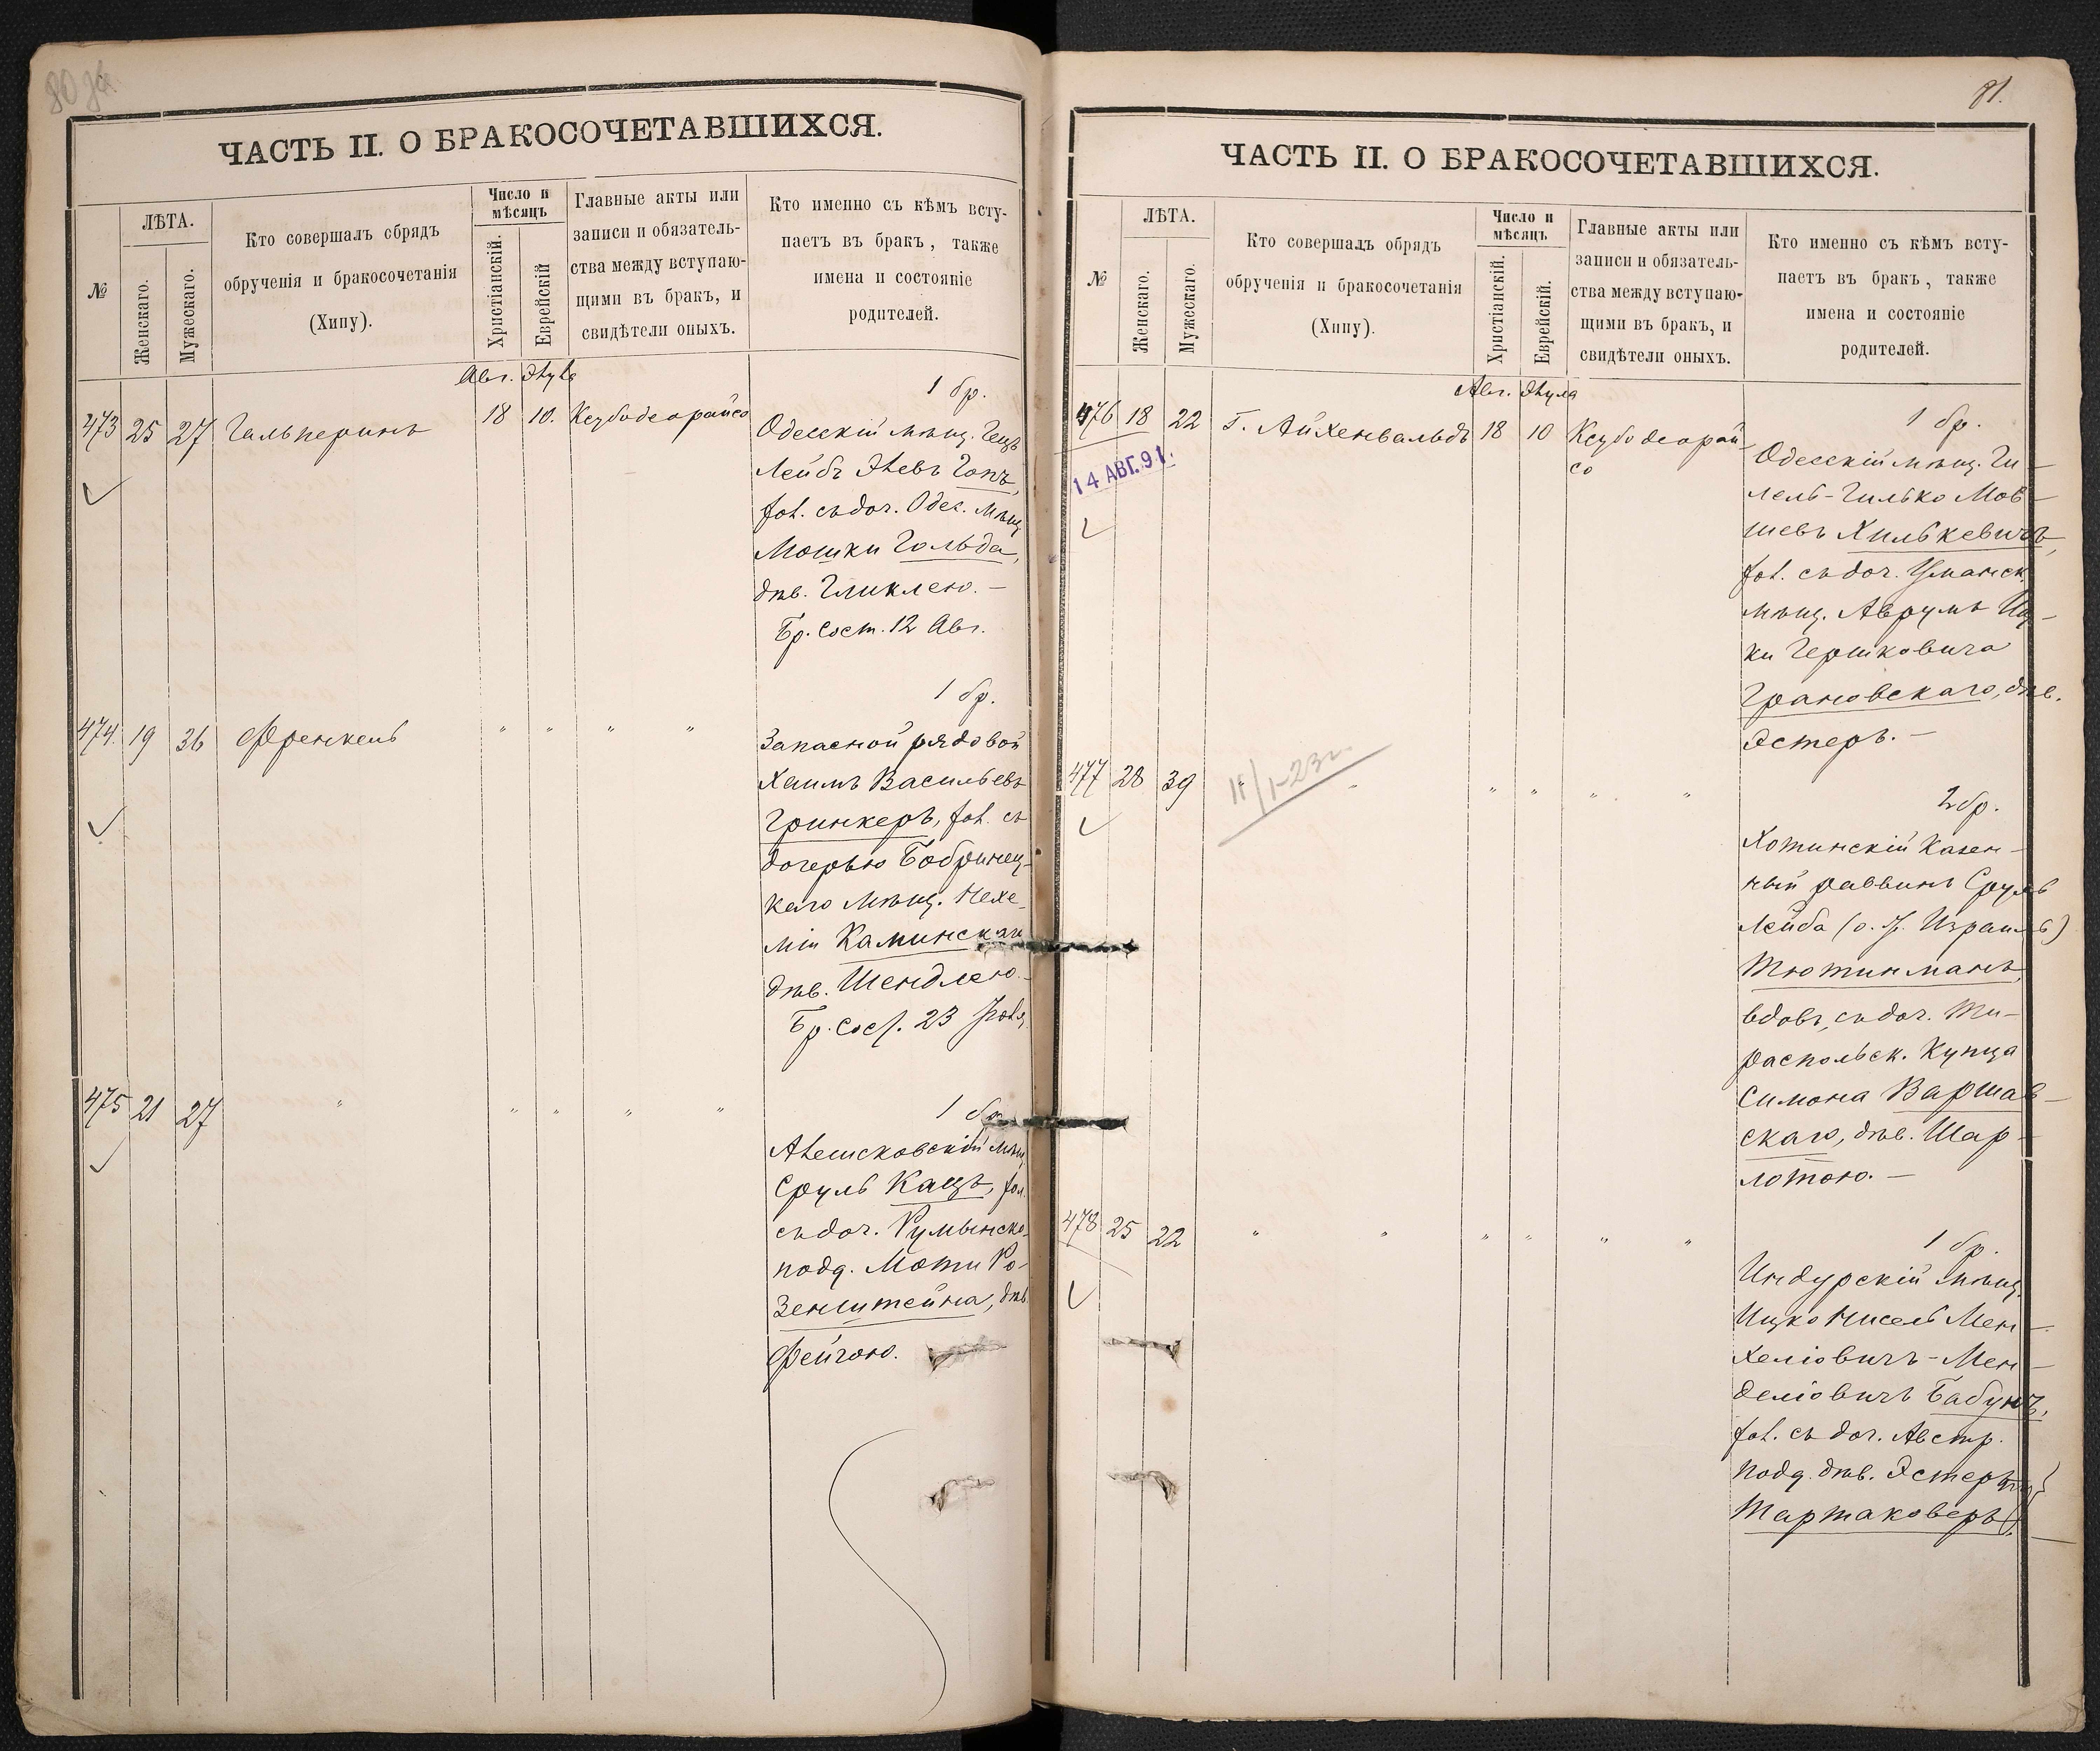 ЧАСТЬ II. О БРАКОСОЧЕТАВШИХСЯ.
№
ЛѢТА.
Женскаго.
Мужескаго.
Кто совершалъ обрядъ
обрученія и бракосочетанія
(Хипу).
Число и
мѣсяцъ
Христіанскій.
Еврейскій
Главные акты или
записи и обязатель-
ства между вступаю-
щими въ бракъ, и
свидѣтели оныхъ.
Кто именно съ кѣмъ всту-
паетъ въ бракъ, также
имена и состояніе
родителей.
Авг. Элула
1 бр.
473 25 27 Гальперинъ 18 10. Ксубо деорайсо
Одесскій мѣщ. Гецъ
Лейбъ Левъ Гопъ,
хол. съ доч. Одес. мѣщ
Мошки Гольда,
дѣв. Гликлею. —
Бр. Сост. 12 Авг.
1 бр.
474. 19 36 Френкель " " " "
Запасной рядовой
Хаимъ Васильевъ
Гринкеръ, хол. съ
дочерью Бобринец-
каго мѣщ. Нехе-
міи Каминскаго
дѣв. Шендлею. -
Бр. Сост. 23 Іюля
475 21 27 " " " " "
1 бр.
Алешковскій мѣщ
Сруль Кацъ, хол.
съ доч. Румынско-
подд. Моти Ро-
зенштейна, дѣв.
Фейгою.
81.
ЧАСТЬ II. О БРАКОСОЧЕТАВШИХСЯ.
№
ЛѢТА.
Женскаго.
Мужескаго.
Кто совершалъ обрядъ
обрученія и бракосочетанія
(Хипу).
Число и
мѣсяцъ
Христіанскій.
Еврейскій.
Главные акты или
записи и обязатель-
ства между вступаю-
щими въ бракъ, и
свидѣтели оныхъ.
Кто именно съ кѣмъ всту-
паетъ въ бракъ, также
имена и состояніе
родителей.
Авг. Элула
1 бр.
476 18 22 Г. Айхенвальдъ 18 10 Ксубо деорай-
со
14 АВГ. 91.
Одесскій мѣщ. Ги-
лель-Гилько Мов-
шевъ Хилькевичъ,
хол. съ доч. Уманск.
мѣщ. Аврумъ Иц-
ки Гершковича
Грановскаго, дѣв.
Эстеръ. —
477 28 39 " " " " " "
2 бр.
Хотинскій Казен-
ный раввинъ Сруль
Лейба (о. ж. Израиль)
Тютинманъ,
вдовъ, съ доч. Ти-
распольск. Купца
Симона Варшав-
скаго, дѣв. Шар-
лотою. —
478 25 22 " " " " " "
1 бр.
Индурскій мѣщ.
Ицко Нисель Мен-
хеліовичъ-Мен-
деліовичъ Бабунъ,
хол. съ доч. Австр.
подд. дѣв. Эстеръ
Тартаковеръ.